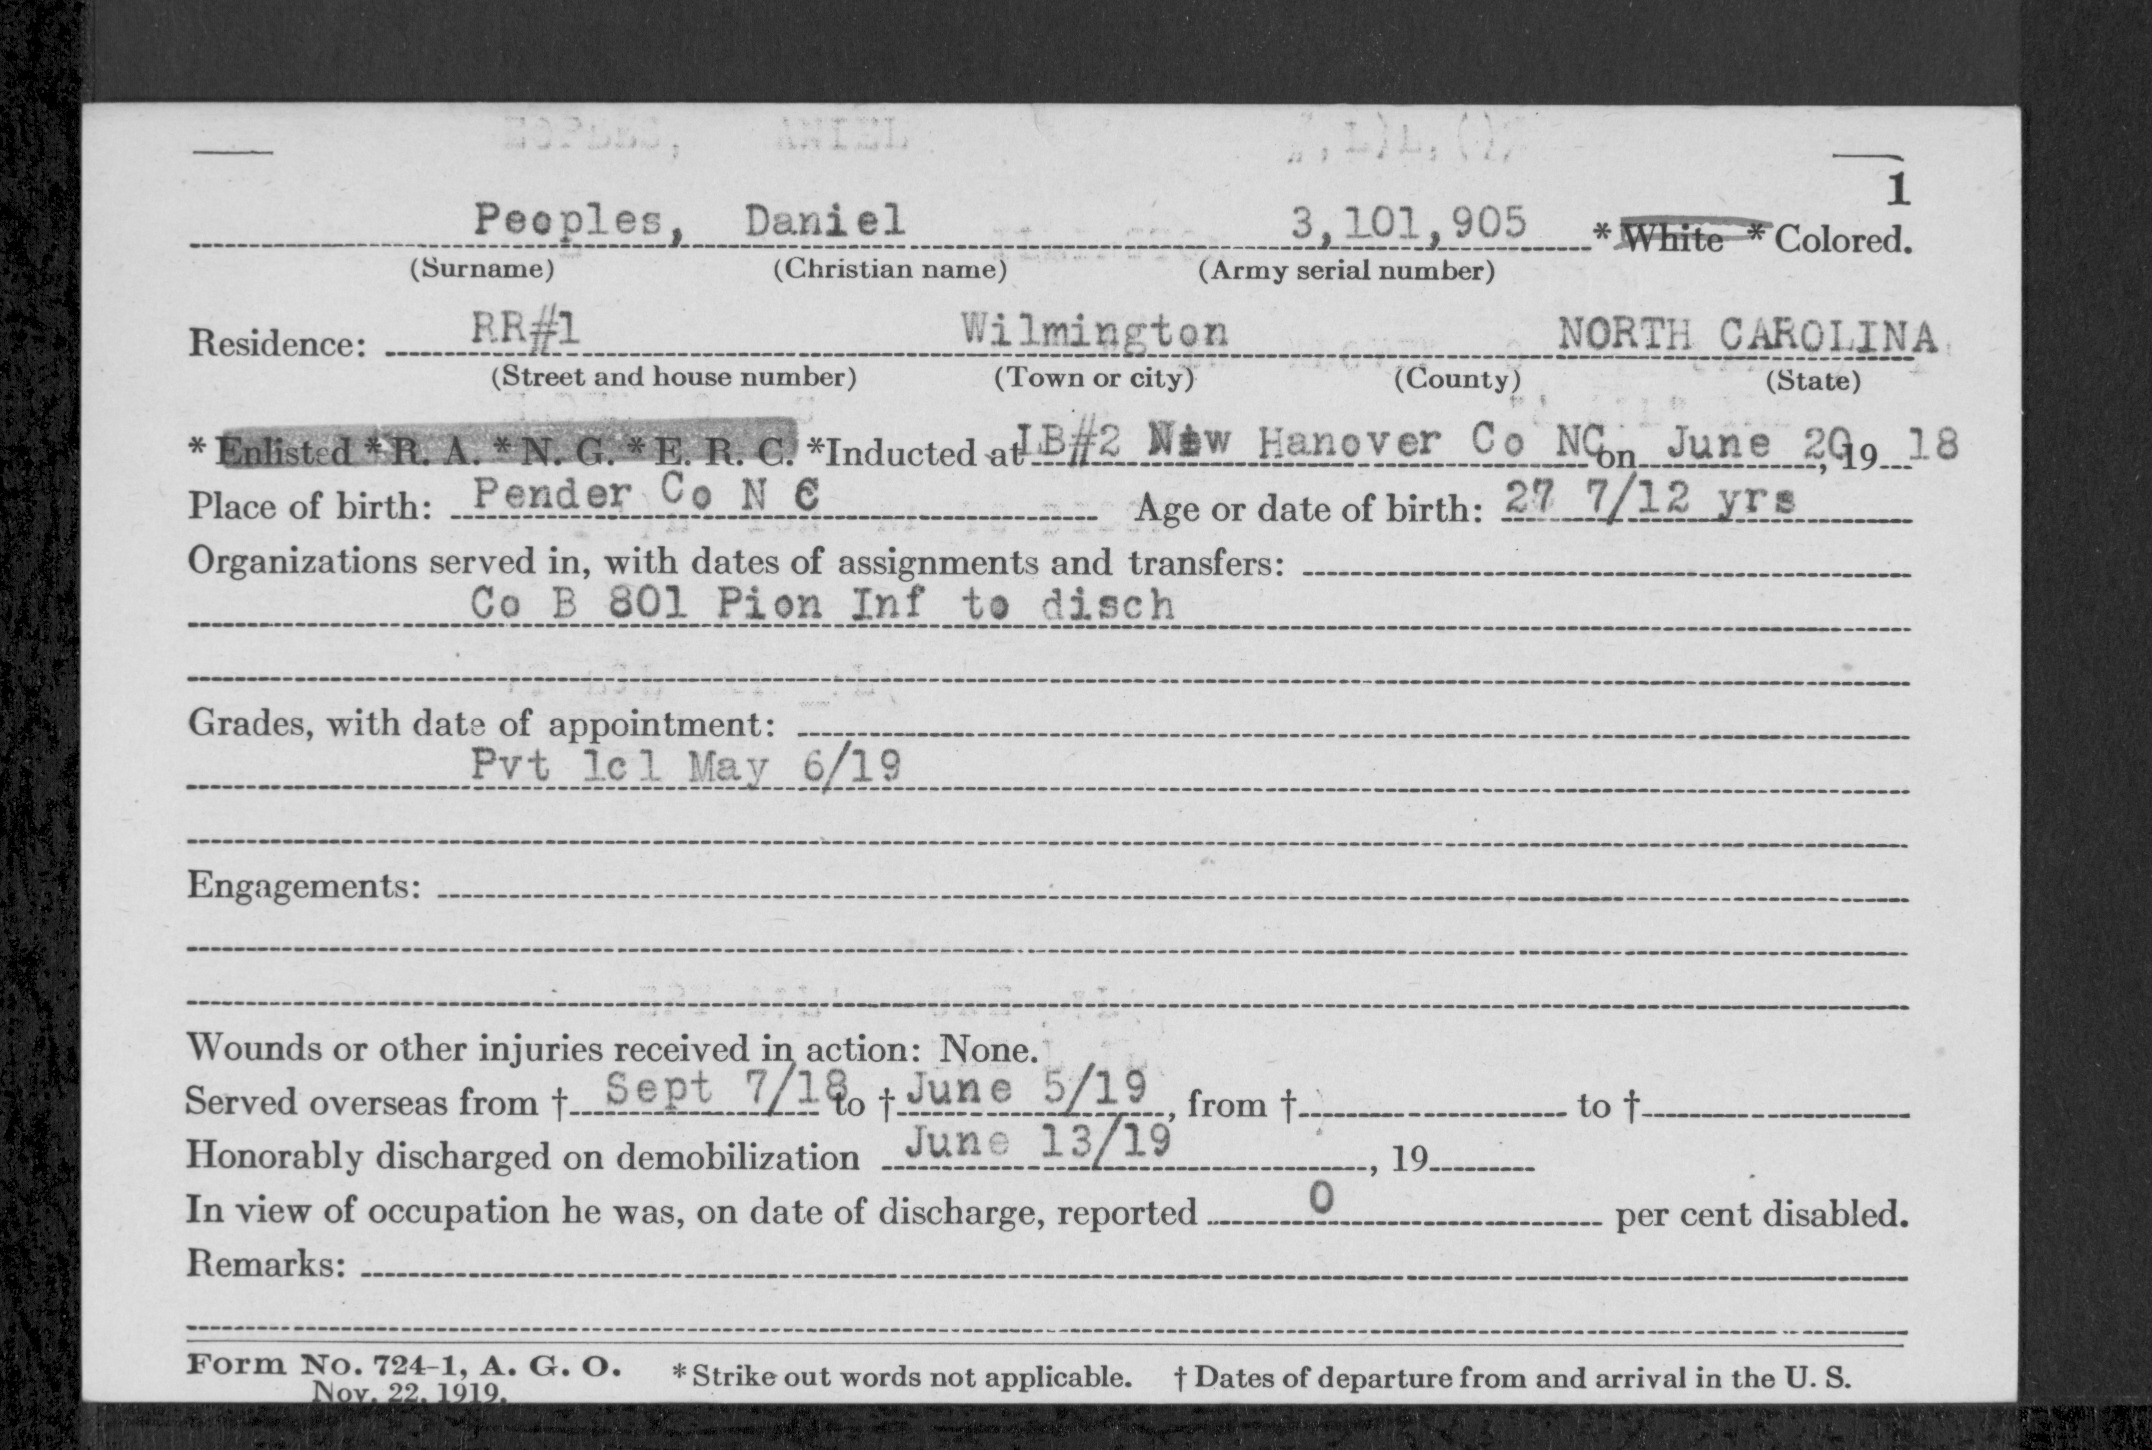 1
Peoples, Daniel 3,101,905 * White * Colored.
(Surname) (Christian name) (Army serial number)
Residence: RR#1 Wilmington NORTH CAROLINA
(Street and house number) (Town or city) (County) (State)
* Enlisted * R. A. * N. G. * E. R. C. *Inducted at LB#2 New Hanover Co NC on June 20, 19 18
Place of birth: Pender Co N C Age or date of birth: 27 7/12 yrs
Organizations served in, with dates of assignments and transfers:
Co B 801 Pion Inf to disch
Grades, with date of appointment:
Pvt 1cl May 6/19
Engagements:
Wounds or other injuries received in action: None.
Served overseas from † Sept 7/18 to † June 5/19, from † to †
Honorably discharged on demobilization June 13/19, 19
In view of occupation he was, on date of discharge, reported 0 per cent disabled.
Remarks:
Form No. 724-1, A. G. O. * Strike out words not applicable. † Dates of departure from and arrival in the U. S.
Nov. 22, 1919.